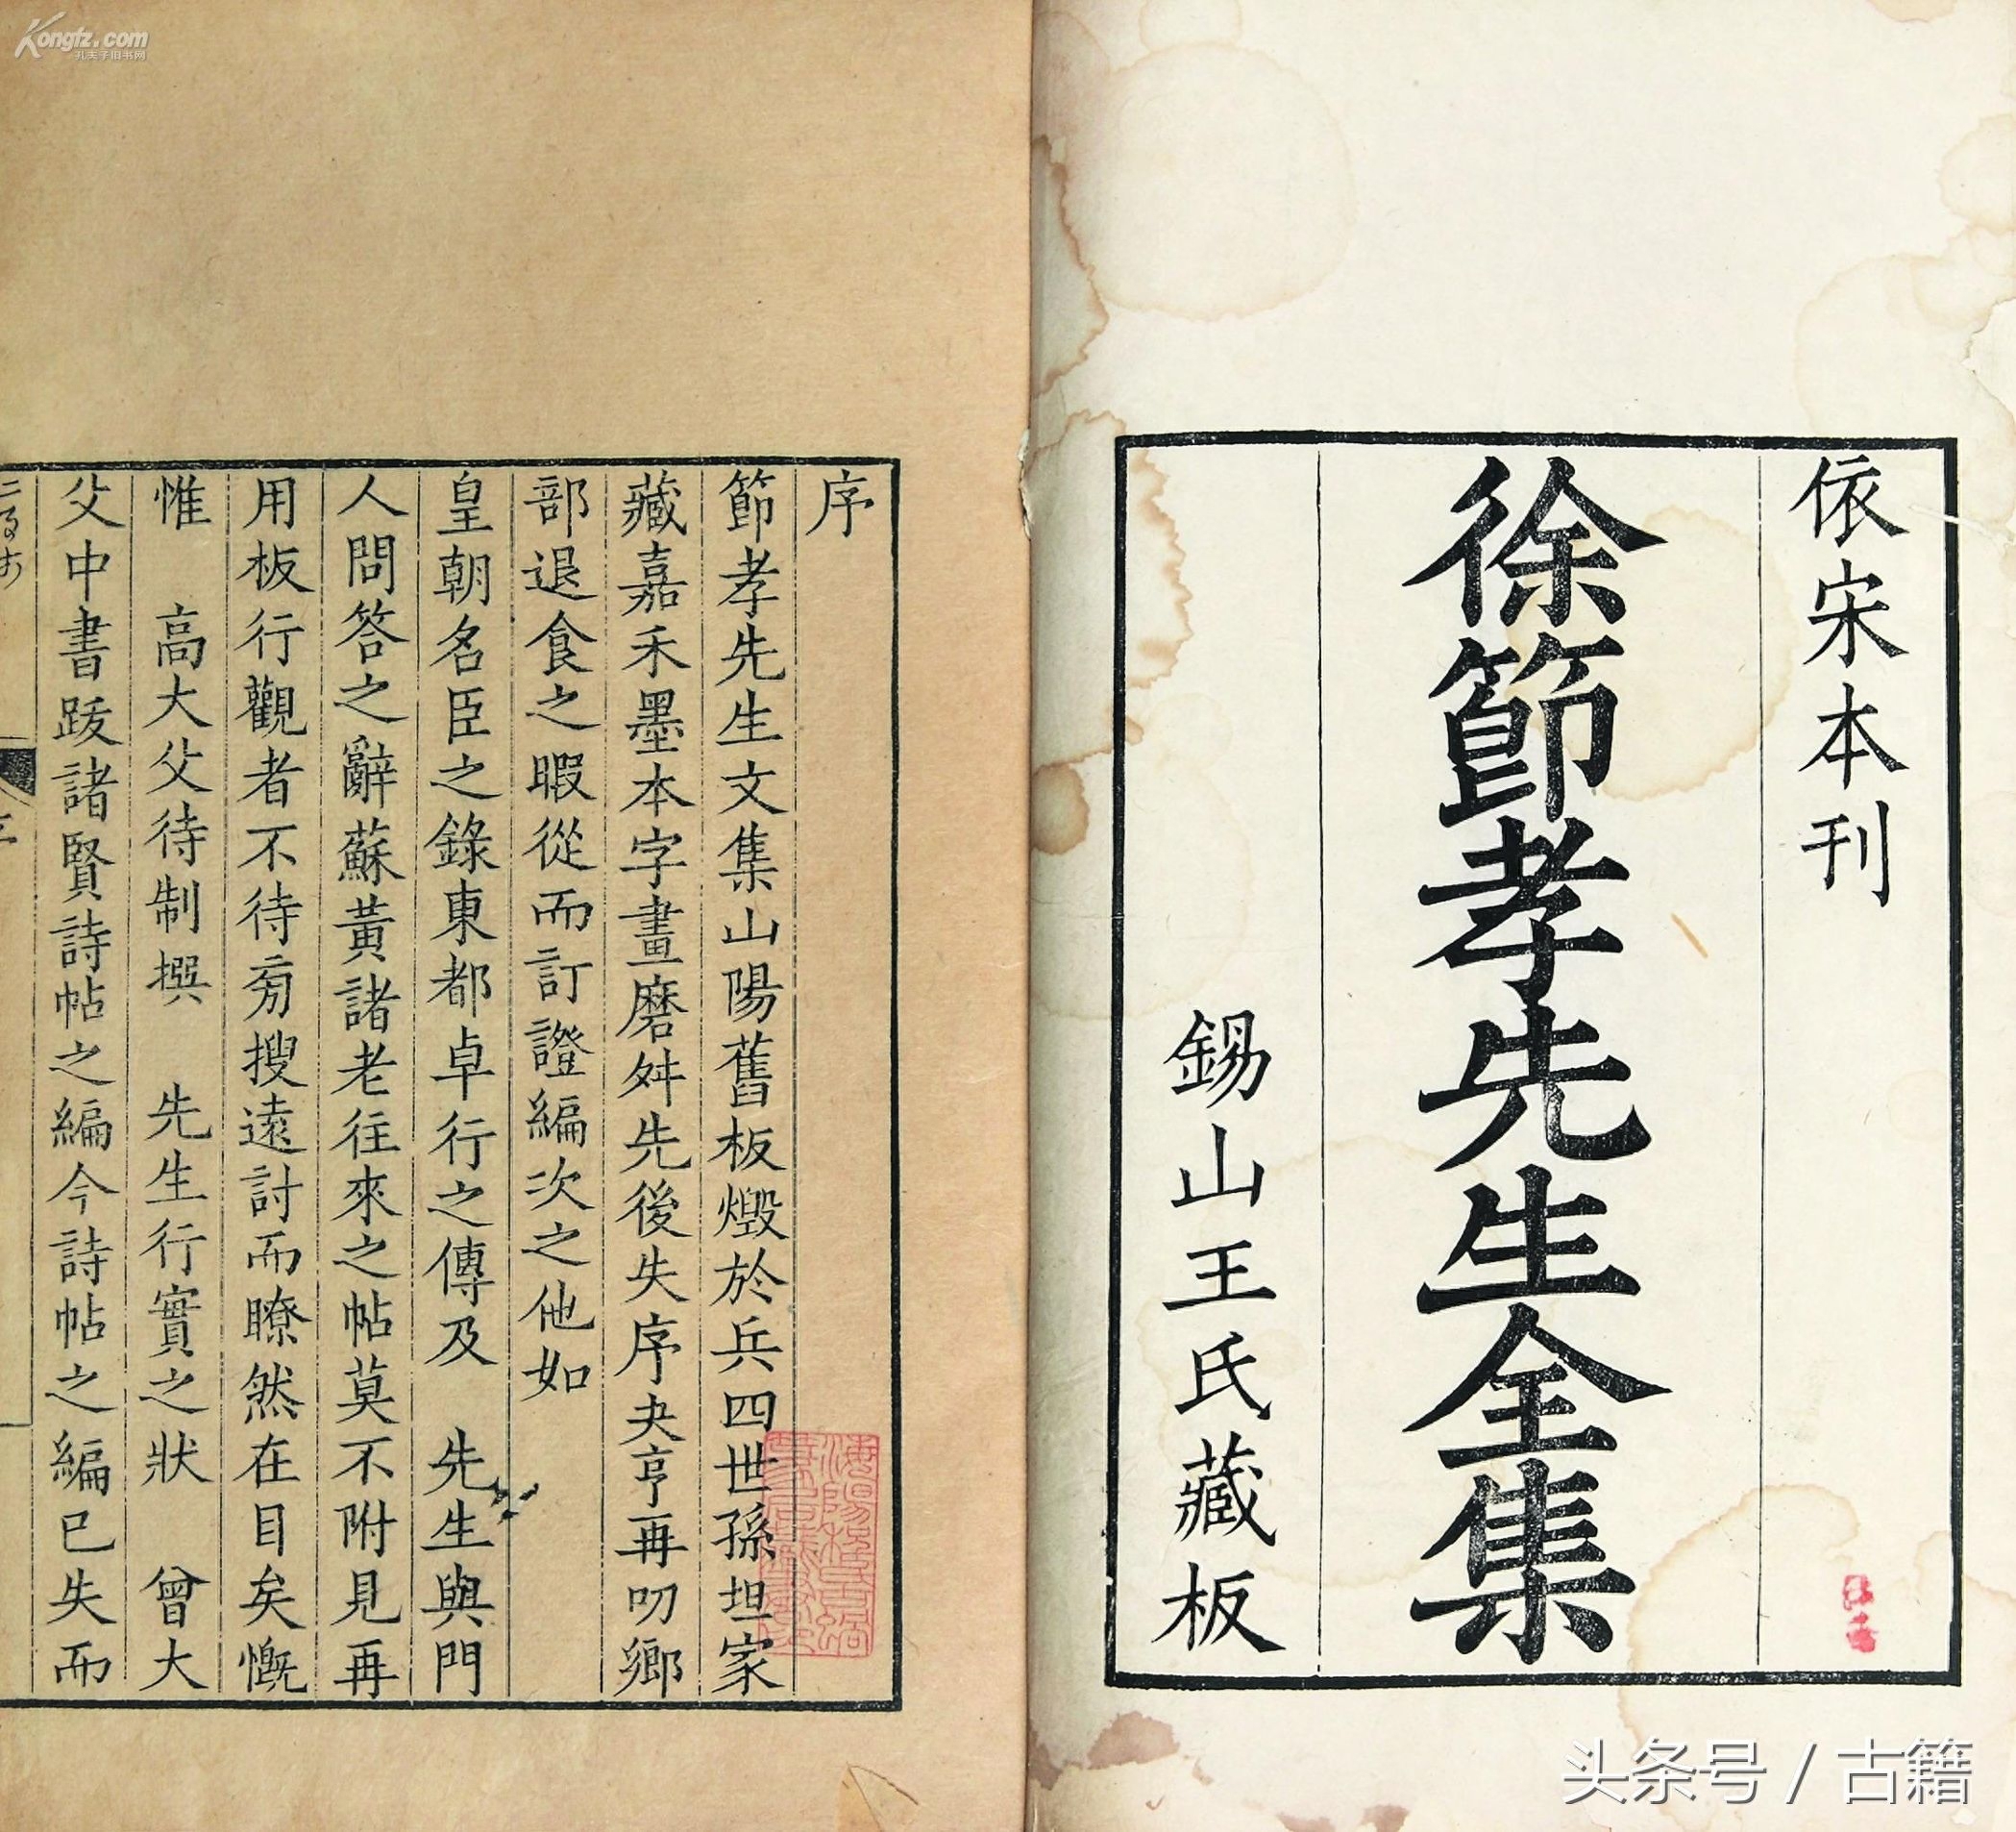 依宋本刊
徐節孝先生全集
錫山王氏藏板
序
節孝先生文集山陽舊板燬於兵四世孫坦家
藏嘉禾墨本字畫磨舛先後失序夬亨再叨鄉
部退食之暇從而訂證編次之他如
皇朝名臣之錄東都卓行之傳及 先生與門
人問答之辭蘇黃諸老往來之帖莫不附見再
用板行觀者不待旁搜遠討而瞭然在目矣慨
惟 高大父待制撰 先生行實之狀 曾大
父中書跋諸賢詩帖之編今詩帖之編已失而
Kongfz.com
孔夫子旧书网
头条号 / 古籍